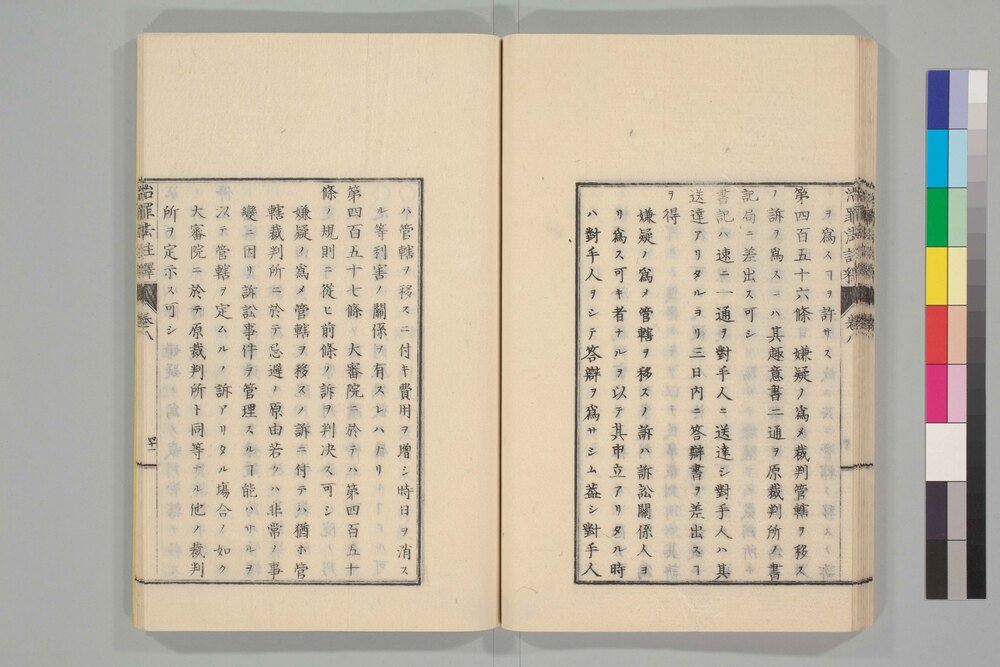 ヲ爲スヿヲ許サス
第四百五十六條 嫌疑ノ爲メ裁判管轄ヲ移ス
ノ訴ヲ爲スニハ其趣意書二通ヲ原裁判所ノ書
記局ニ差出ス可シ
書記ハ速ニ一通ヲ對手人ニ送達シ對手人ハ其
送達アリタルヨリ三日内ニ答辯書ヲ差出スヿ
ヲ得
嫌疑ノ爲メ管轄ヲ移スノ訴ハ訴訟關係人ヨ
リ爲ス可キ者ナルヲ以テ其申立アリタル時
ハ對手人ヲシテ答辯ヲ爲サシム葢シ對手人
ハ管轄ヲ移スニ付キ費用ヲ增シ時日ヲ消ス
ル等利害ノ關係ヲ有スレハナリ
第四百五十七條 大審院ニ於テハ第四百五十
條ノ規則ニ從ヒ前條ノ訴ヲ判决ス可シ
嫌疑ノ爲メ管轄ヲ移スノ訴ニ付テハ猶ホ管
轄裁判所ニ於テ忌避ノ原由若クハ非常ノ事
變ニ因リ訴訟事件ヲ管理スルヿ能ハサルヲ
以テ管轄ヲ定ムルノ訴アリタル塲合ノ如ク
大審院ニ於テ原裁判所ト同等ナル他ノ裁判
所ヲ定示ス可シ
治罪法註釋 卷八